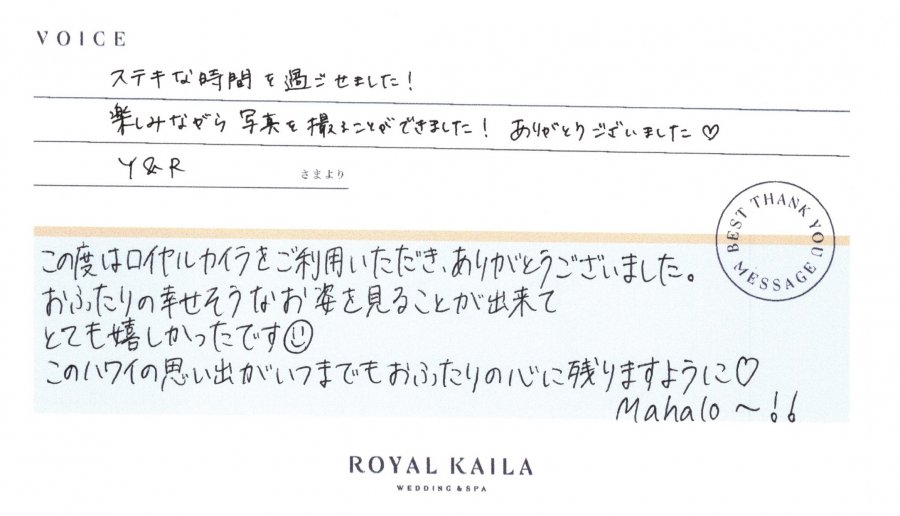 VOICE
ステキな時間を過ごせました!
楽しみながら写真を撮ることができました! ありがとうございました♡
Y&R さまより
BEST THANK YOU MESSAGE
この度はロイヤルカイラをご利用いただき、ありがとうございました。
おふたりの幸せそうなお姿を見ることが出来て
とても嬉しかったです☺
このハワイの思い出がいつまでもおふたりの心に残りますように♡
Mahalo〜!!
ROYAL KAILA
WEDDING & SPA